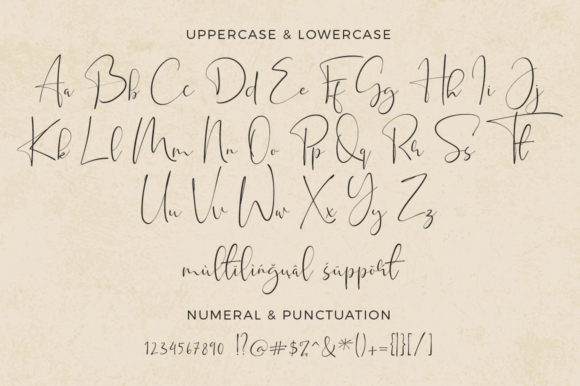 UPPERCASE & LOWERCASE
Aa Bb Cc Dd Ee Ff Gg Hh Ii Jj
Kk Ll Mm Nn Oo Pp Qq Rr Ss Tt
Uu Vv Ww Xx Yy Zz
mùltïlińğuâl śüppöřt
NUMERAL & PUNCTUATION
1234567890 !?@#$%^&*()+={|}[/]